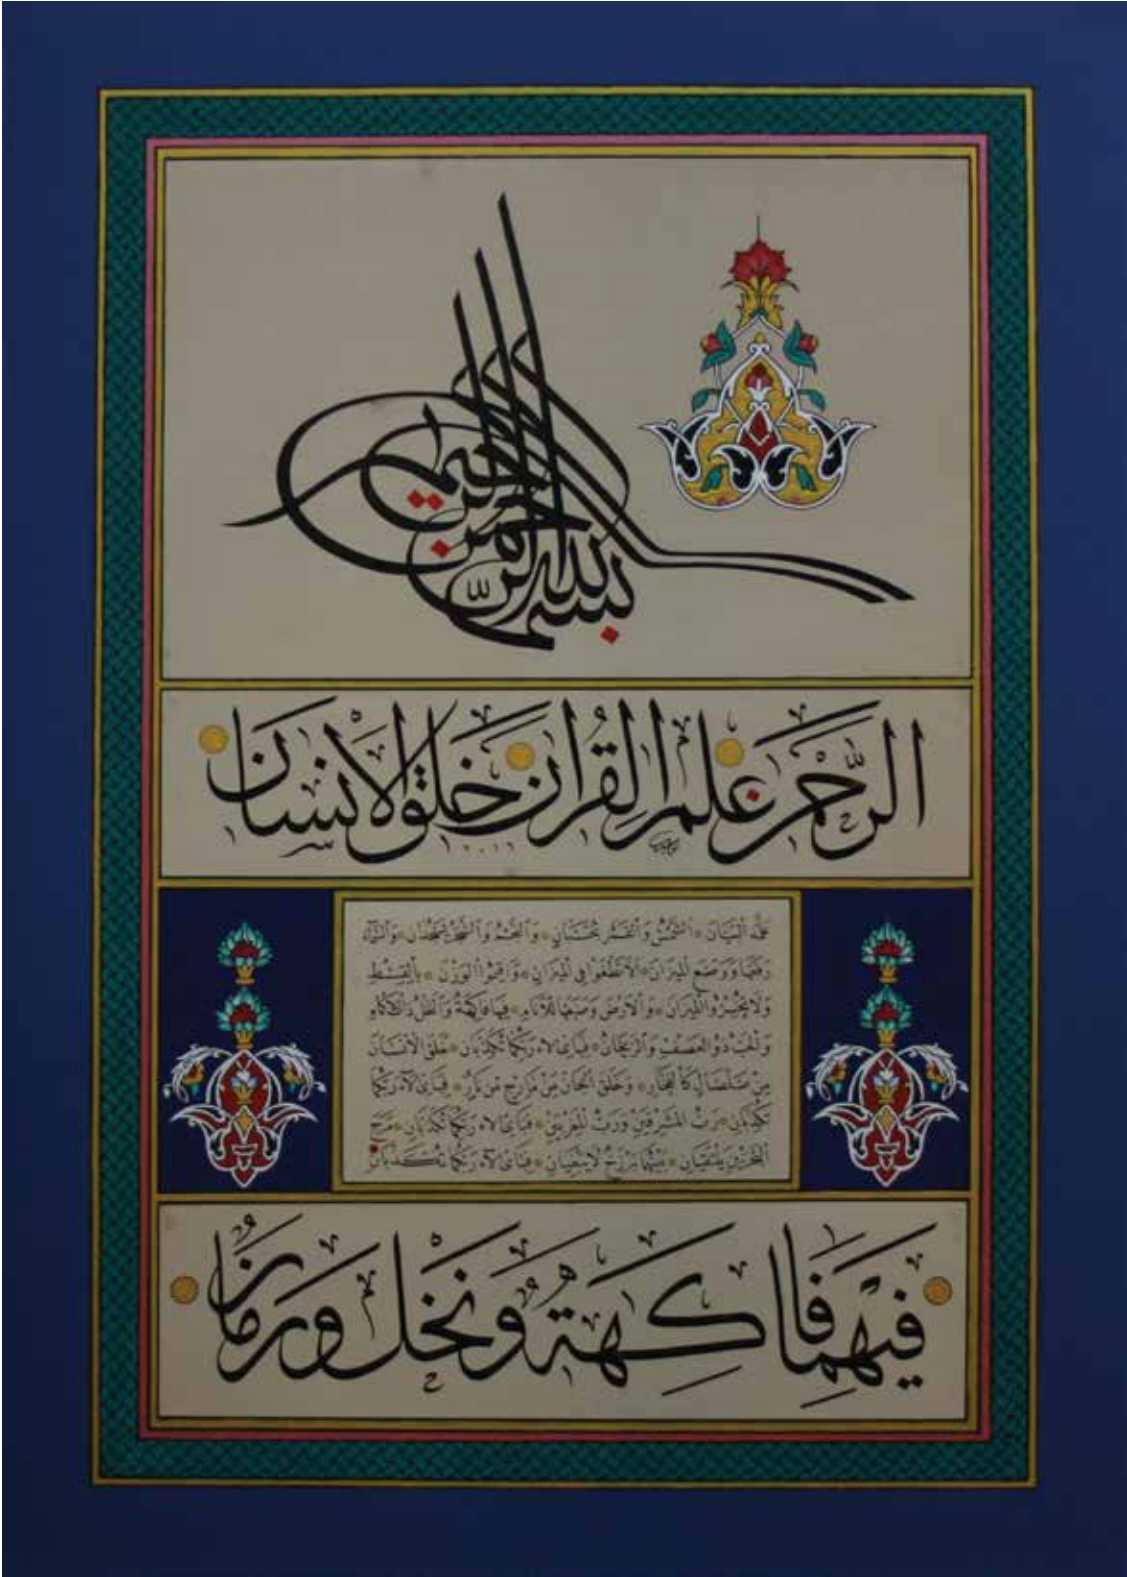 بسم الله الرحمن الرحيم
الرَّحْمَن علم القُرآن خَلَقَ الأنْسَان
عَلَّمَهُ البَيَانَ الشَّمْسُ وَالقَمَرُ بِحُسْبَانٍ وَالنَّجْمُ وَالشَّجَرُ يَسْجُدَانِ وَالسَّمَآءَ
رَفَعَهَا وَوَضَعَ المِيزَانَ أَلَّا تَطْغَوْا فِي المِيزَانِ وَأَقِيمُوا الوَزْنَ بِالقِسْطِ
وَلَا تُخْسِرُوا المِيزَانَ وَالأَرْضَ وَضَعَهَا لِلأَنَامِ فِيهَا فَاكِهَةٌ وَالنَّخْلُ ذَاتُ الأَكْمَامِ
وَالحَبُّ ذُو العَصْفِ وَالرَّيْحَانُ فَبِأَيِّ آلَاءِ رَبِّكُمَا تُكَذِّبَانِ خَلَقَ الأِنْسَانَ
مِنْ صَلْصَالٍ كَالفَخَّارِ وَخَلَقَ الجَانَّ مِنْ مَارِجٍ مِنْ نَارٍ فَبِأَيِّ آلَاءِ رَبِّكُمَا
تُكَذِّبَانِ رَبُّ المَشْرِقَيْنِ وَرَبُّ المَغْرِبَيْنِ فَبِأَيِّ آلَاءِ رَبِّكُمَا تُكَذِّبَانِ مَرَجَ
البَحْرَيْنِ يَلْتَقِيَانِ بَيْنَهُمَا بَرْزَخٌ لَا يَبْغِيَانِ فَبِأَيِّ آلَاءِ رَبِّكُمَا تُكَذِّبَانِ
فِيهِمَا فَاكِهَةٌ وَنَخْلٌ وَرُمَّانٌ